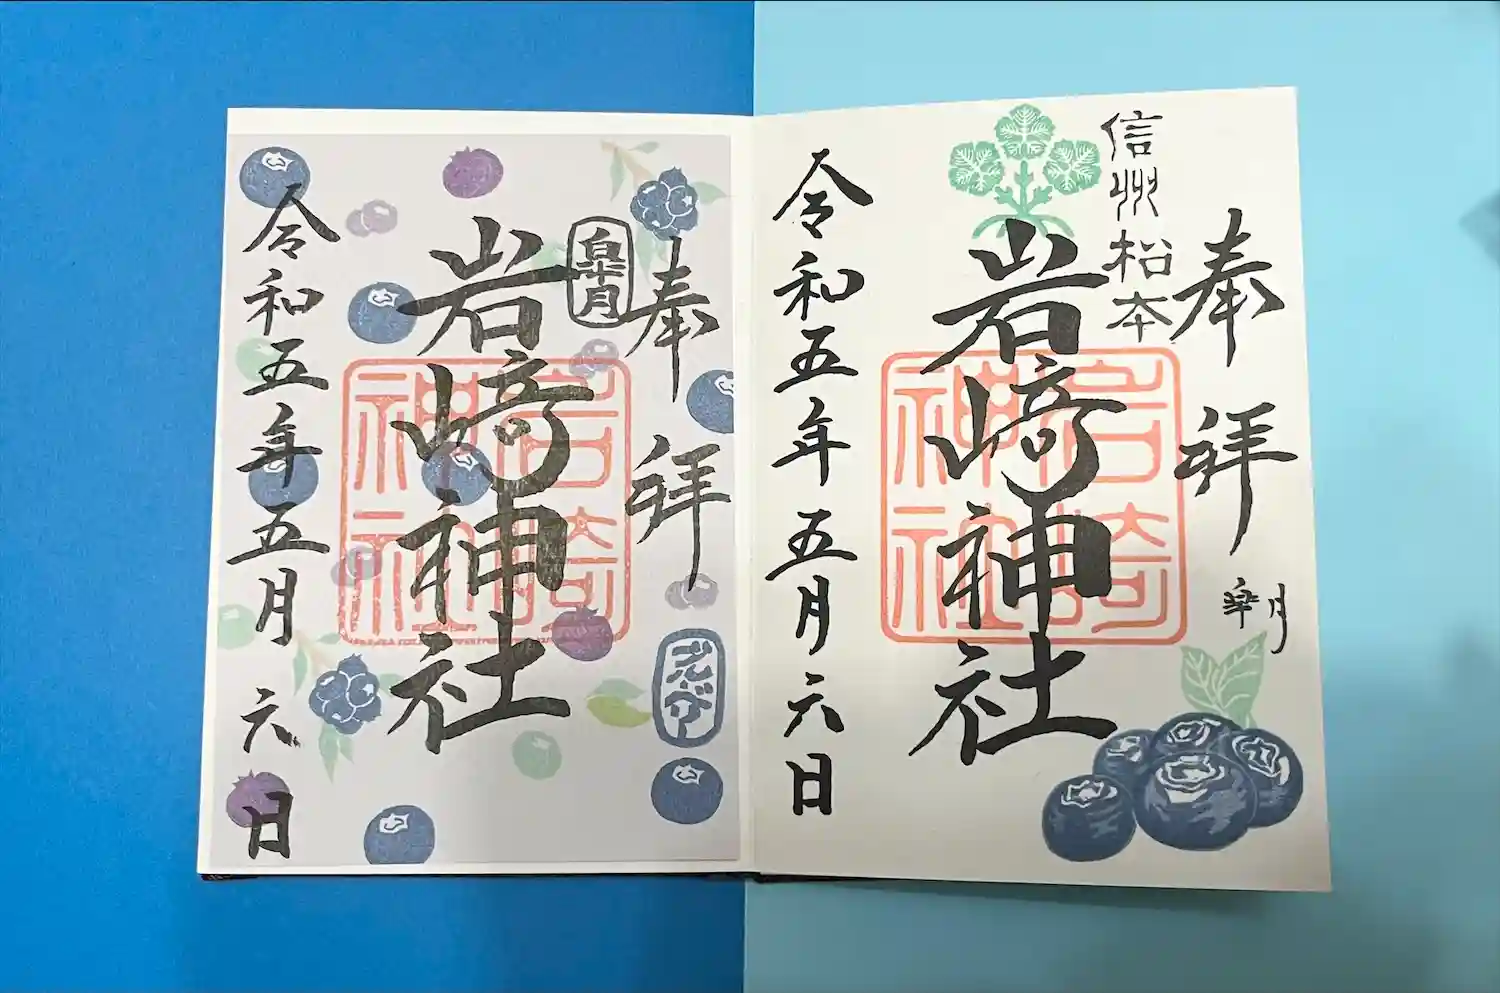 信州松本
奉拝
皐月
岩崎神社
岩崎神社
令和五年五月六日
奉拝
皐月
ブルーベリー
岩崎神社
岩崎神社
令和五年五月六日